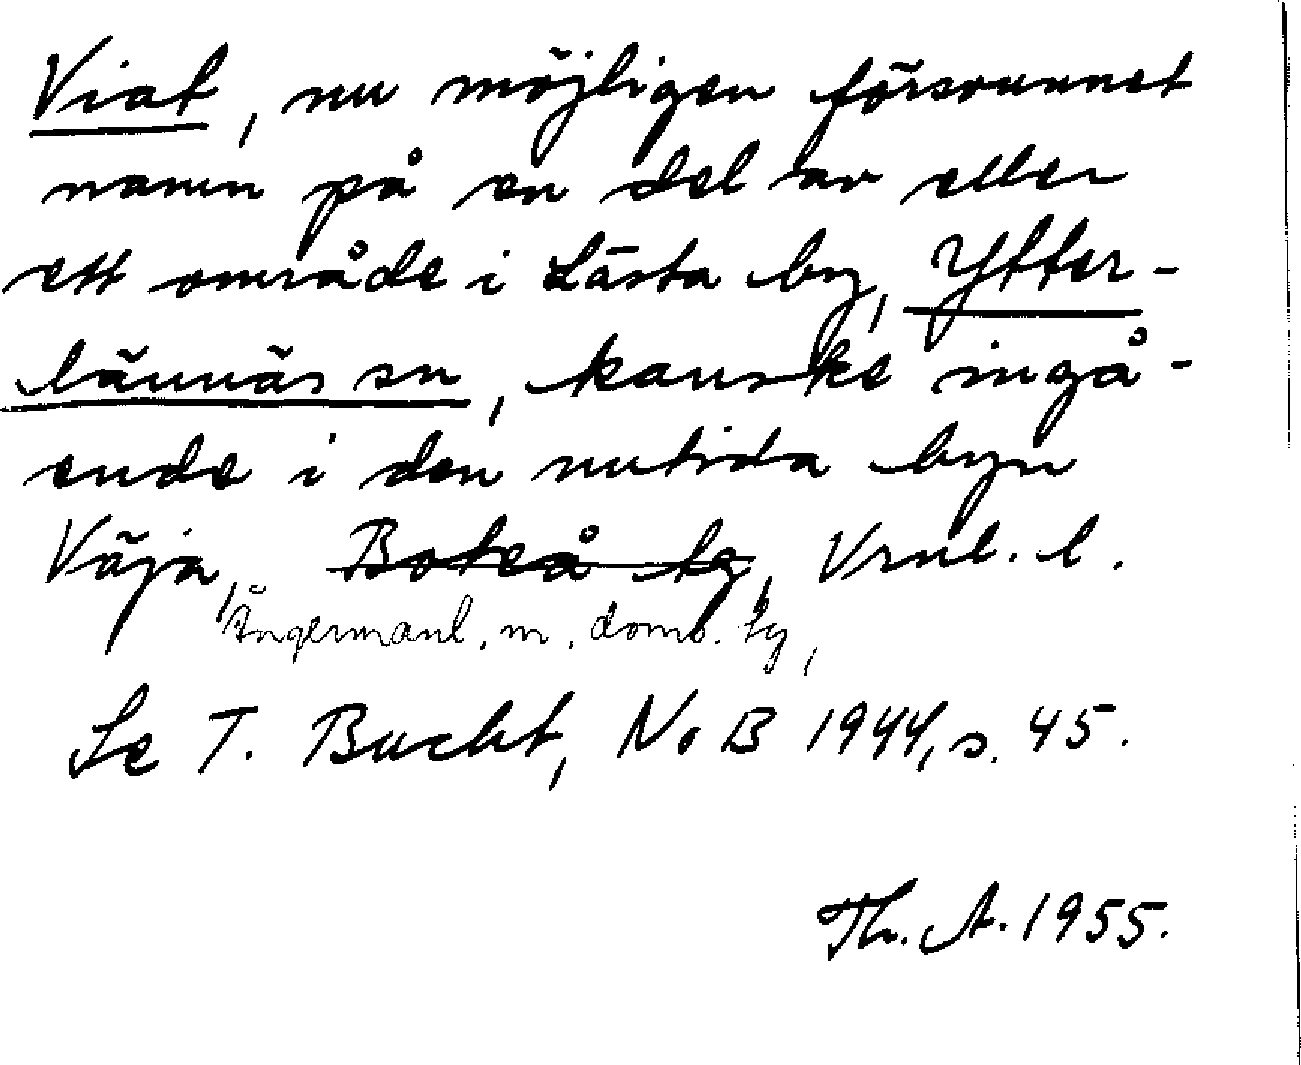 Viat, nu möjligen försvunnet
namn på en del av eller
ett område i Lästa by, Ytter-
lännäs sn, kanske ingå-
ende i den nutida byn
Väja, Boteå tg, Vrnl. l.
Ångermanl. m. doms. tg,
Se T. Bucht, NoB 1944, s. 45.
Th. A. 1955.